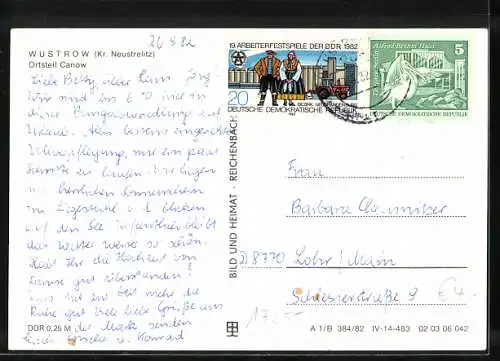 26.8.82
WUSTROW (Kr. Neustrelitz)
Ortsteil Canow
Liebe Betty, lieber Hans Jörg!
Wir sind bis 6.9. hier in
dieser Bungalowsiedlung auf
Urlaub. Alles bestens eingerichtet
Vollverpflegung, nur ein paar
Schritte zu laufen. Wir liegen
im herrlichen Sonnenschein
im Liegestuhl u. blicken
auf den See. Hoffentlich bleibt
das Wetter weiter so schön.
Habt Ihr die Hochzeit von
gut überstanden?
nicht mehr die
Ruhe gut. Viele liebe Grüße aus
der Mark senden
Euch und Konrad
DDR 0,25 M
BILD UND HEIMAT · REICHENBACH
19. ARBEITERFESTSPIELE DER DDR 1982
20
DEUTSCHE DEMOKRATISCHE REPUBLIK
Berlin Alfred-Brehm-Haus
5
DEUTSCHE DEMOKRATISCHE REPUBLIK
Frau
Barbara
D 8770 Lohr/Main
Schlesierstraße 9
€ 4,-
A 1/B 384/82 IV-14-483 02 03 06 042